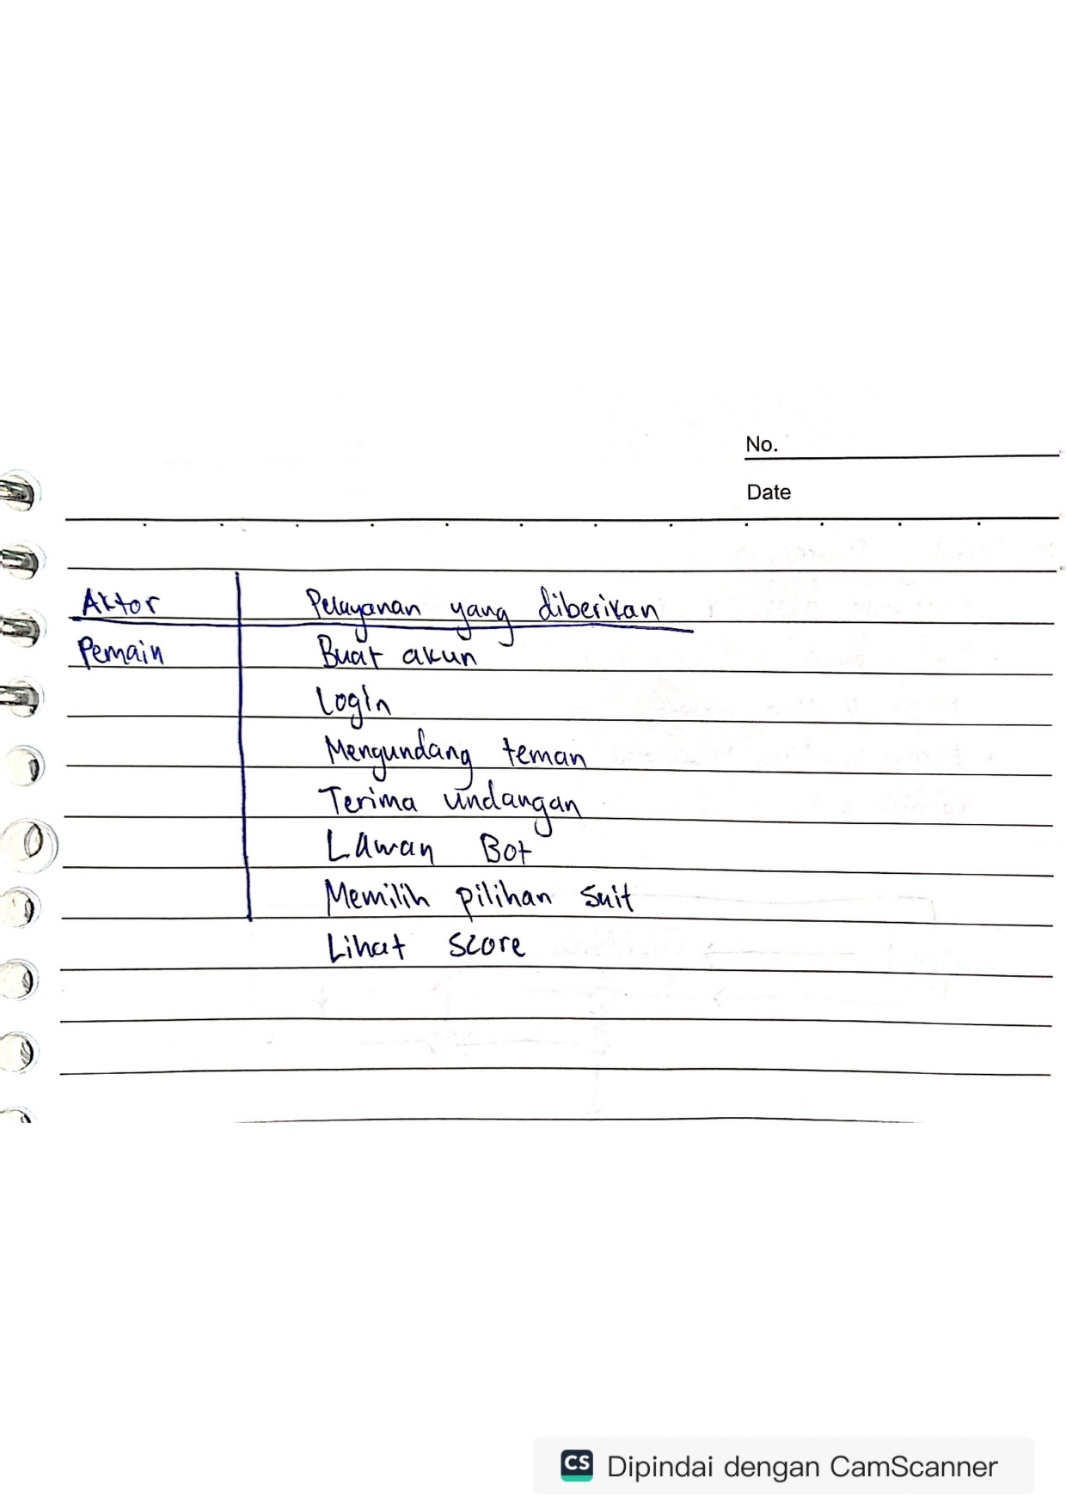 No.
Date
Aktor Pelayanan yang diberikan
Pemain Buat akun
Login
Mengundang teman
Terima undangan
Lawan Bot
Memilih pilihan suit
Lihat score
CS Dipindai dengan CamScanner